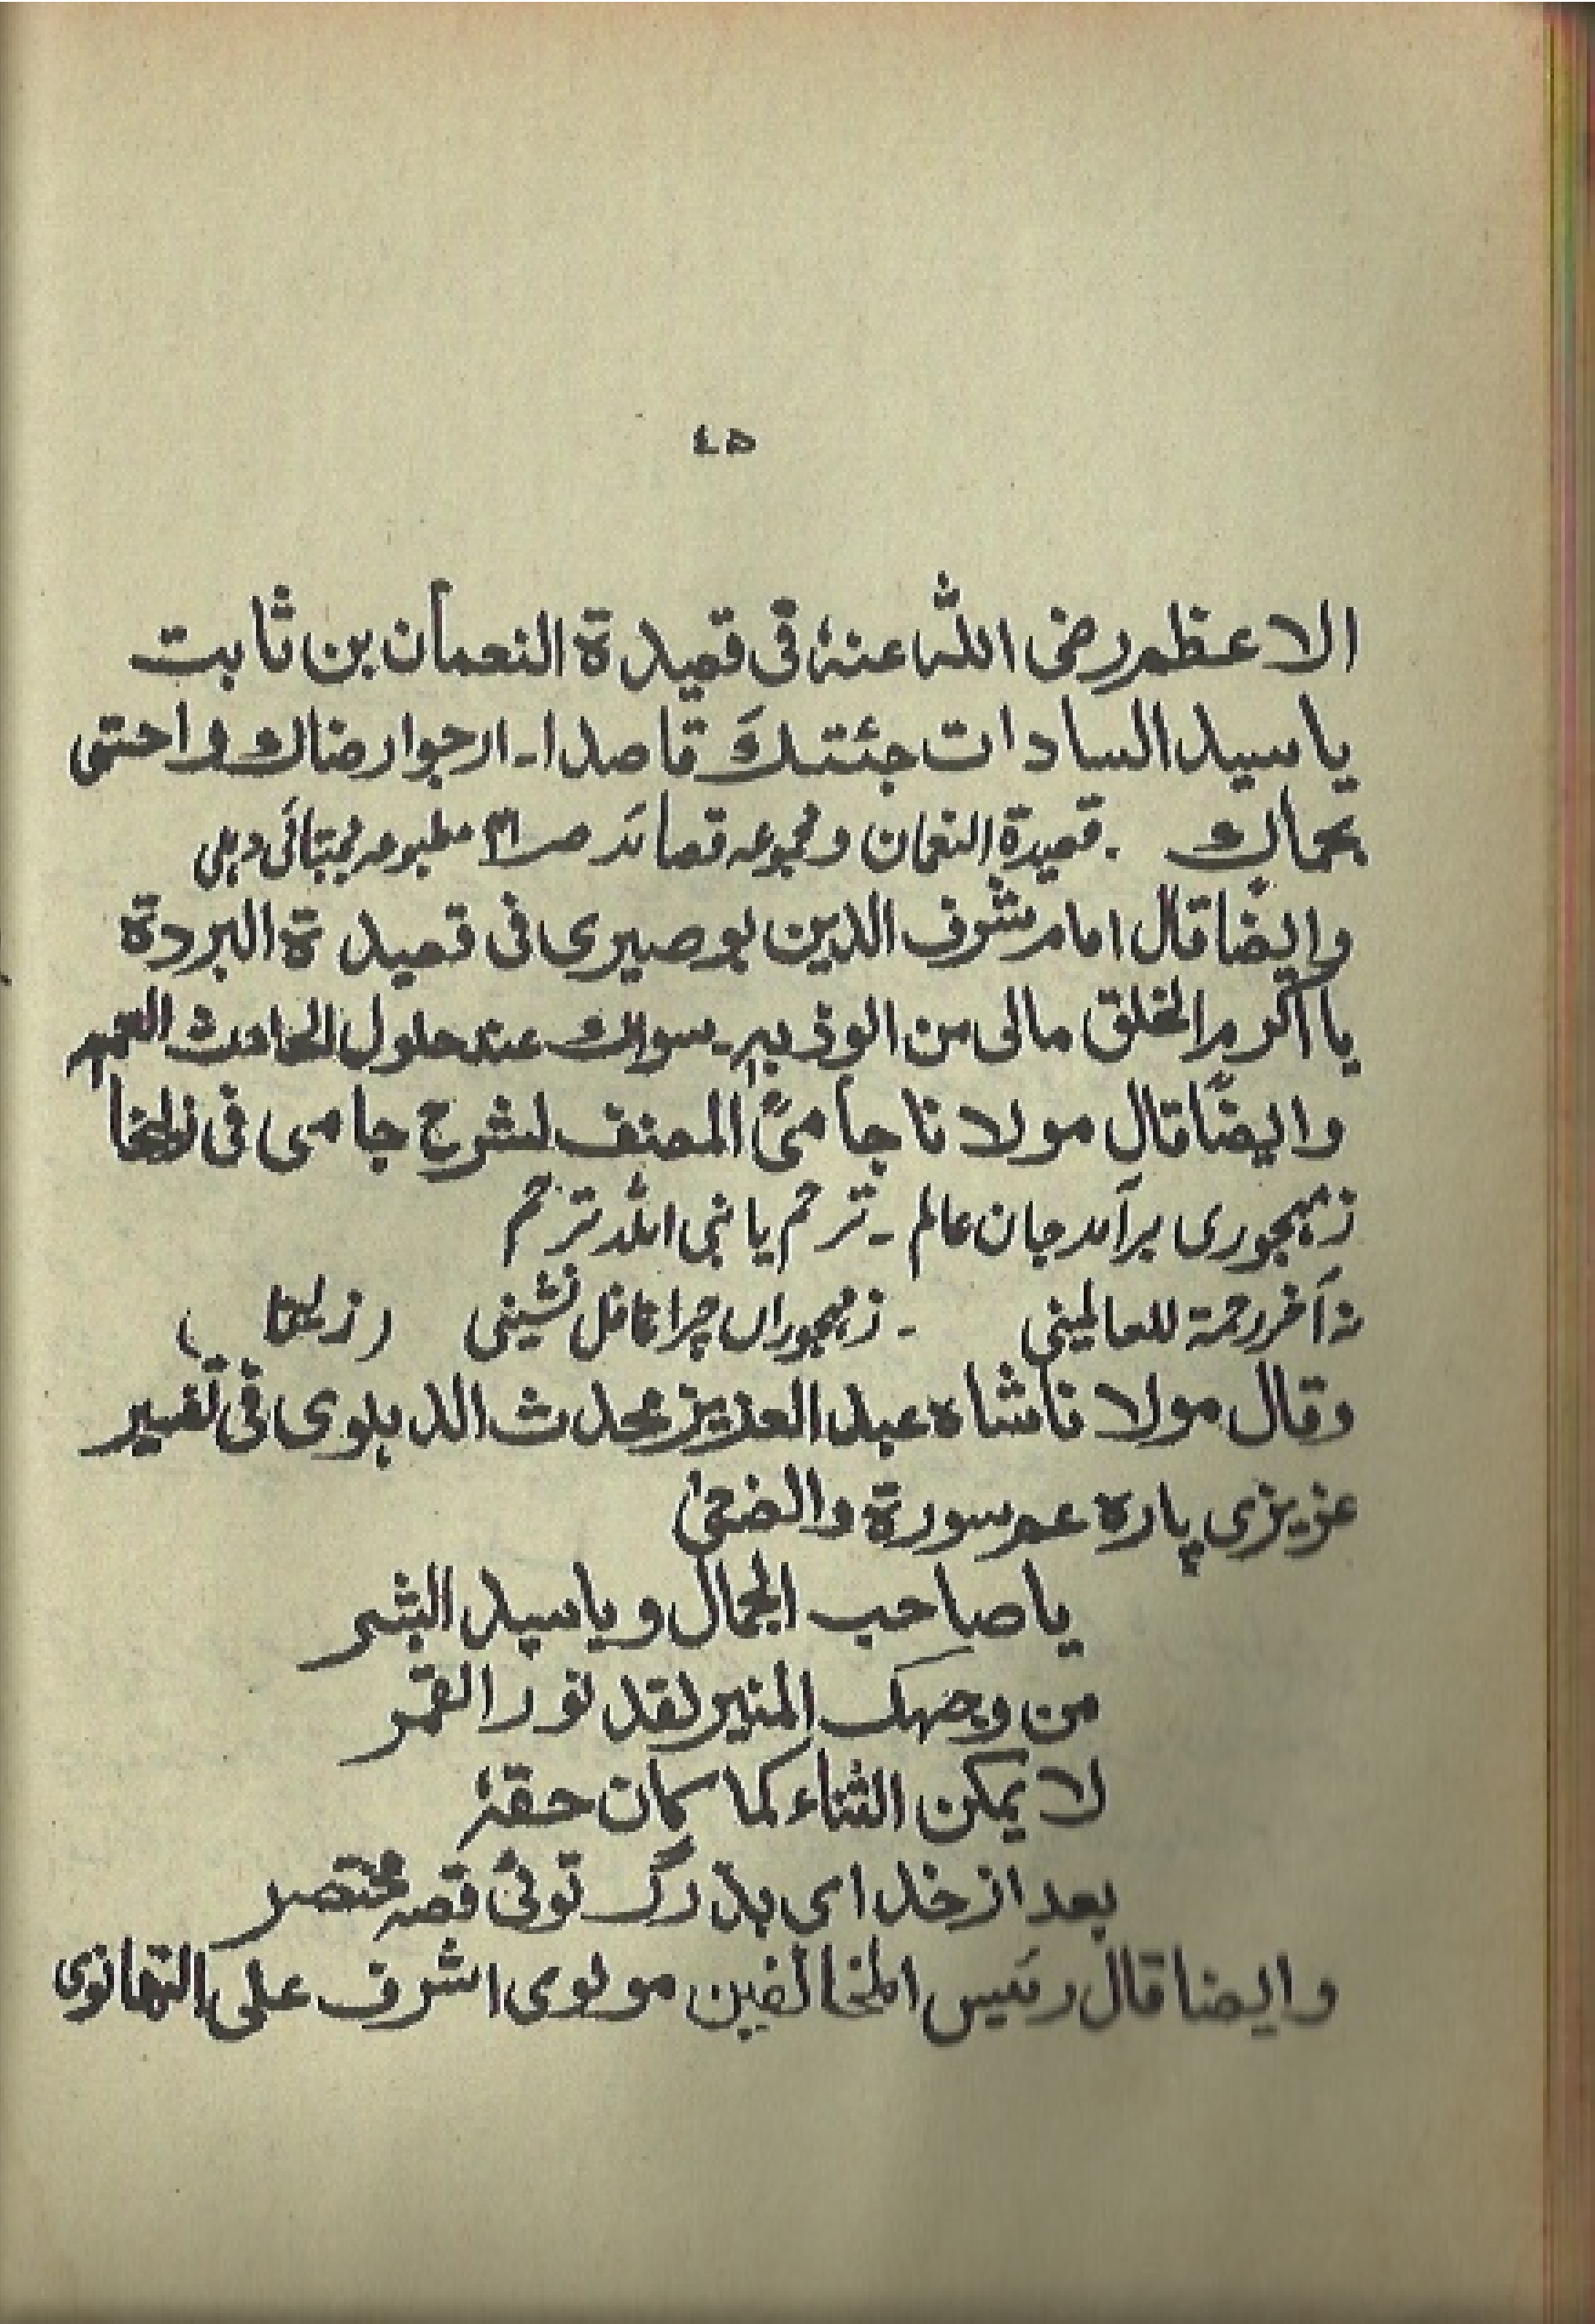 ٤٥
الاعظم رضی اللہ عنہٗ فی قصیدۃ النعمان بن ثابت
یا سید السادات جئتکَ قاصدا۔ ارجوا رضاك واحتمی
بحماك . قصیدۃ النعمان و مجموعہ قصائد صـ ٤١ مطبوعہ مجتبائی دہلی
وایضًا قال امام شرف الدین بوصیری فی قصیدۃ البردۃ
یا اکرم الخلق مالی من الوذ بہٖ۔ سواك عند حلول الحادث العمم
وایضًا قال مولانا جامیؒ المصنف لشرح جامی فی زلیخا
زمہجوری برآمد جان عالم ۔ ترحم یا نبی اللہ ترحم
نہ آخر رحمۃ للعالمینی ۔ زمہجوراں چرا غافل نشینی (زلیخا)
وقال مولانا شاہ عبد العزیز محدث الدہلوی فی تفسیر
عزیزی پارہ عم سورۃ والضحیٰ
یا صاحب الجمال و یا سید البشر
من وجہك المنیر لقد نور القمر
لا یمکن الثناء کما کان حقہٗ
بعد از خدا ای بزرگ توئی قصہ مختصر
وایضا قال رئیس المخالفین مولوی اشرف علی التھانوی